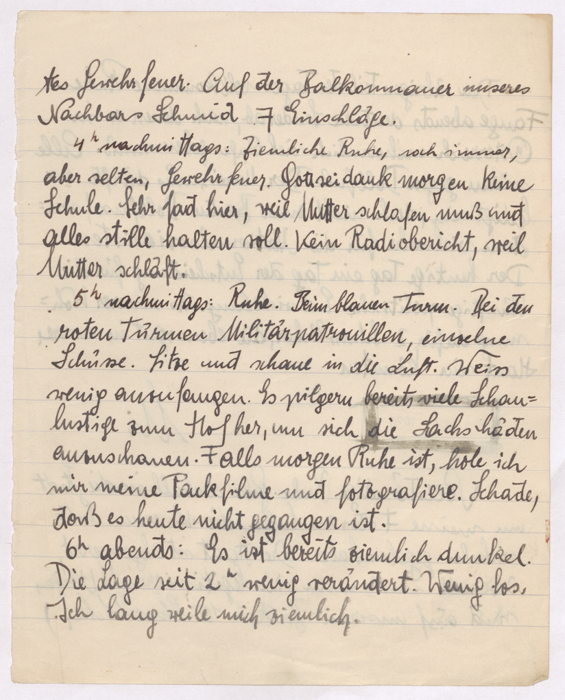 tes Gewehrfeuer. Auf der Balkonmauer unseres
Nachbars Schmid 7 Einschläge.
4ʰ nachmittags: Ziemliche Ruhe, noch immer,
aber selten, Gewehrfeuer. Gottseidank morgen keine
Schule. Sehr fad hier, weil Mutter schlafen muß und
alles stille halten soll. Kein Radiobericht, weil
Mutter schläft.
5ʰ nachmittags: Ruhe. Beim blauen Turm. Bei den
roten Türmen Militärpatrouillen, einzelne
Schüsse. Sitze und schaue in die Luft. Weiss
wenig anzufangen. Es pilgern bereits viele Schau=
lustige zum Hof her, um sich die Sachschäden
anzuschauen. Falls morgen Ruhe ist, hole ich
mir meine Packfilme und fotografiere. Schade,
daß es heute nicht gegangen ist.
6ʰ abends: Es ist bereits ziemlich dunkel.
Die Lage seit 2ʰ wenig verändert. Wenig los.
Ich lang weile mich ziemlich.